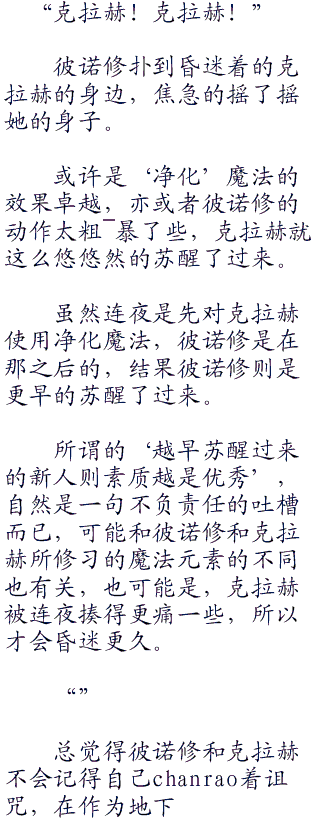 “克拉赫！克拉赫！”
彼诺修扑到昏迷着的克
拉赫的身边，焦急的摇了摇
她的身子。
或许是‘净化’魔法的
效果卓越，亦或者彼诺修的
动作太粗¯暴了些，克拉赫就
这么悠悠然的苏醒了过来。
虽然连夜是先对克拉赫
使用净化魔法，彼诺修是在
那之后的，结果彼诺修则是
更早的苏醒了过来。
所谓的‘越早苏醒过来
的新人则素质越是优秀’，
自然是一句不负责任的吐槽
而已，可能和彼诺修和克拉
赫所修习的魔法元素的不同
也有关，也可能是，克拉赫
被连夜揍得更痛一些，所以
才会昏迷更久。
“”
总觉得彼诺修和克拉赫
不会记得自己chanrao着诅
咒，在作为地下